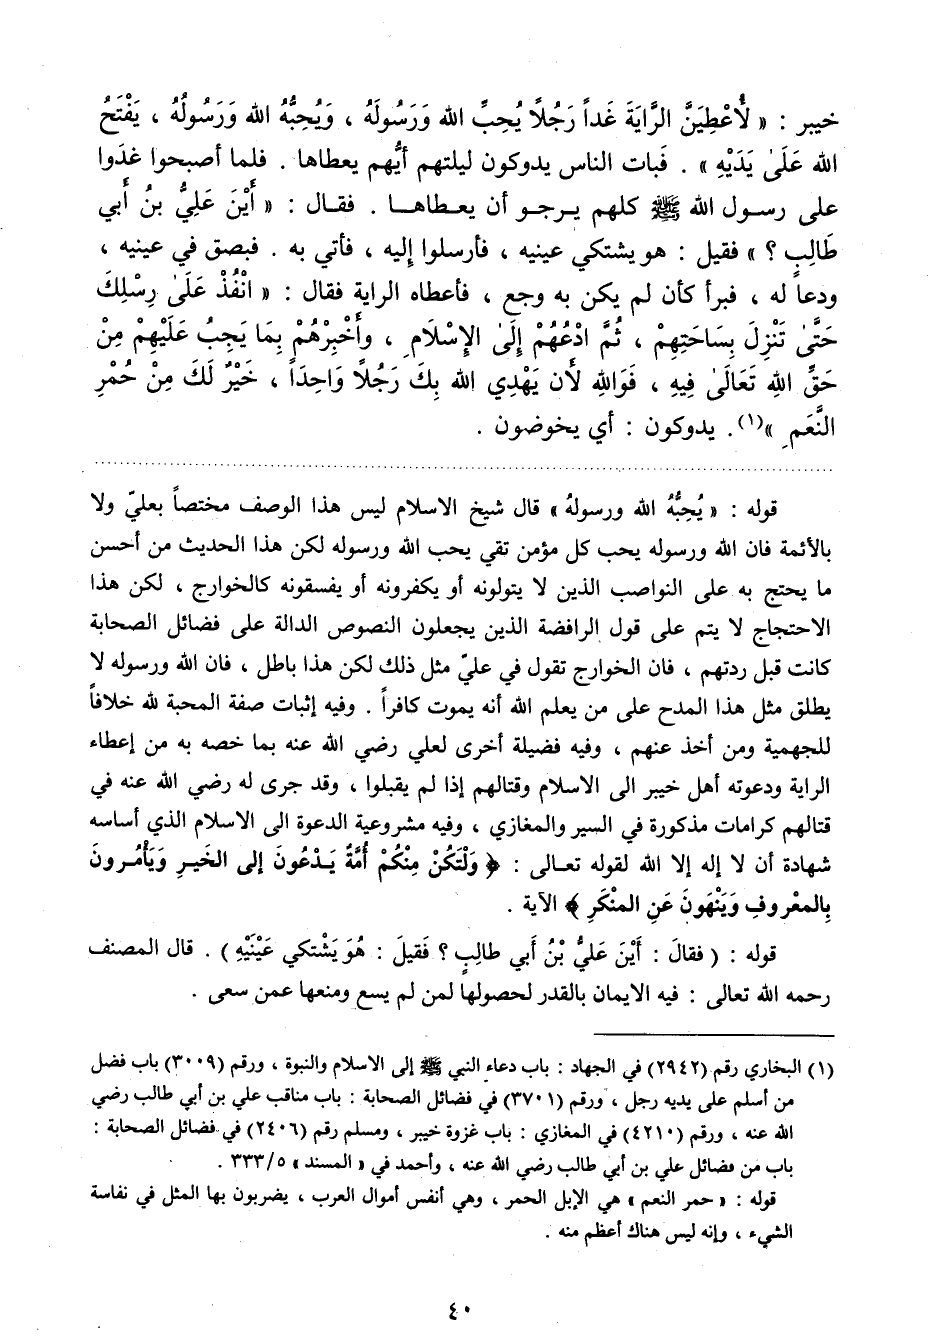 خيبر : « لَأُعْطِيَنَّ الرَّايَةَ غَداً رَجُلًا يُحِبِّ الله وَرَسُولَهُ ، وَيُحِبُّهُ الله وَرَسُولُهُ ، يَفْتَحُ
الله عَلَىٰ يَدَيْهِ » . فَبات الناس يدوكون ليلتهم أيُّهم يعطاها . فلما أصبحوا غدَوا
على رسول الله ﷺ كلهم يرجو أن يعطاها . فقال : « أَيْنَ عَلِيُّ بنُ أَبي
طَالِبٍ ؟ » فقيل : هو يشتكي عينيه ، فأرسلوا إليه ، فأتي به . فبصق في عينيه ،
ودعا له ، فبرأ كأن لم يكن به وجع ، فأعطاه الراية فقال : « انْفُذْ عَلَىٰ رِسْلِكَ
حَتَّىٰ تَنْزِلَ بِسَاحَتِهِمْ ، ثُمَّ ادْعُهُمْ إِلَىٰ الإِسْلَامِ ، وأَخْبِرْهُمْ بِمَا يَجِبُ عَلَيْهِمْ مِنْ
حَقِّ اللهِ تَعَالَىٰ فِيهِ ، فَوَاللهِ لَأَن يَهْدِي الله بِكَ رَجُلاً وَاحِدَاً ، خَيْرٌ لَكَ مِنْ حُمْرِ
النَّعَمِ »(١). يدوكون : أي يخوضون .
قوله : « يُحِبُّهُ الله ورسولهُ » قال شيخ الاسلام ليس هذا الوصف مختصاً بعليّ ولا
بالأئمة فان الله ورسوله يحب كل مؤمن تقي يحب الله ورسوله لكن هذا الحديث من أحسن
ما يحتج به على النواصب الذين لا يتولونه أو يكفرونه أو يفسقونه كالخوارج ، لكن هذا
الاحتجاج لا يتم على قول الرافضة الذين يجعلون النصوص الدالة على فضائل الصحابة
كانت قبل ردتهم ، فان الخوارج تقول في عليّ مثل ذلك لكن هذا باطل ، فان الله ورسوله لا
يطلق مثل هذا المدح على من يعلم الله أنه يموت كافراً . وفيه إثبات صفة المحبة لله خلافاً
للجهمية ومن أخذ عنهم ، وفيه فضيلة أخرى لعلي رضي الله عنه بما خصه به من إعطاء
الراية ودعوته أهل خيبر الى الاسلام وقتالهم إذا لم يقبلوا ، وقد جرى له رضي الله عنه في
قتالهم كرامات مذكورة في السير والمغازي ، وفيه مشروعية الدعوة الى الاسلام الذي أساسه
شهادة أن لا إله إلا الله لقوله تعالى : ﴿ وَلْتَكُنْ مِنْكُمْ أُمَّةٌ يَدْعُونَ إلى الخَيرِ وَيَأْمُرونَ
بِالمعْروفِ وَيَنْهَونَ عَنِ المنْكَرِ ﴾ الآية .
قوله : ( فقالَ : أَيْنَ عَليُّ بْنُ أَبي طالِبٍ ؟ فَقيلَ : هُوَ يَشْتكي عَيْنَيْهِ ) . قال المصنف
رحمه الله تعالى : فيه الايمان بالقدر لحصولها لمن لم يسع ومنعها عمن سعى .
(١) البخاري رقم (٢٩٤٢) في الجهاد : باب دعاء النبي ﷺ إلى الاسلام والنبوة ، ورقم (٣٠٠٩) باب فضل
من أسلم على يديه رجل ، ورقم (٣٧٠١) في فضائل الصحابة : باب مناقب علي بن أبي طالب رضي
الله عنه ، ورقم (٤٢١٠) في المغازي : باب غزوة خيبر ، ومسلم رقم (٢٤٠٦) في فضائل الصحابة :
باب من فضائل علي بن أبي طالب رضي الله عنه ، وأحمد في « المسند » ٣٣٣/٥ .
قوله : « حمر النعم » هي الإبل الحمر ، وهي أنفس أموال العرب ، يضربون بها المثل في نفاسة
الشيء ، وإنه ليس هناك أعظم منه .
٤٠